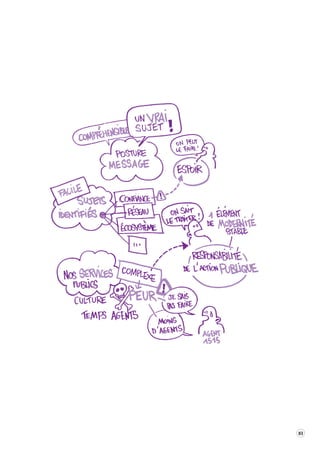 UN VRAI
SUJET !
COMPRÉHENSIBLE
POSTURE
MESSAGE
ON PEUT
LE FAIRE!
ESPOIR
FACILE
SUJETS
IDENTIFIÉS
CONFIANCE
!
RÉSEAU
ÉCOSYSTÈME
...
ON SAIT
LE TRAITER!
1 ÉLÉMENT
DE MODERNITÉ
RESPONSABILITÉ
DE L'ACTION PUBLIQUE
NOS SERVICES
PUBLICS
COMPLEXE
CULTURE
PEUR
!
JE SAIS
PAS FAIRE
TEMPS AGENTS
MOINS
D'AGENTS
AGENT